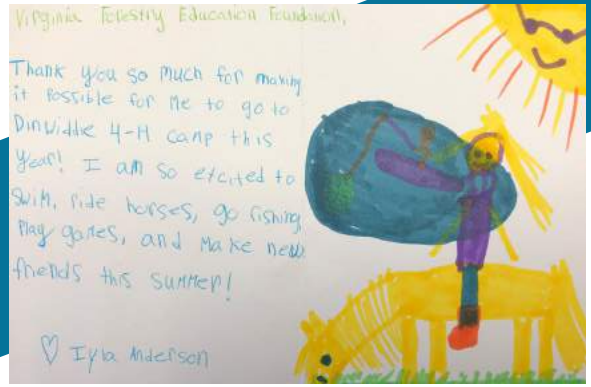 Virginia Forestry Education Foundation,
Thank you so much for making
it possible for me to go to
Dinwiddie 4-H camp this
year! I am so excited to
swim, ride horses, go fishing,
play games, and make new
friends this summer!
♡ Iyla Anderson